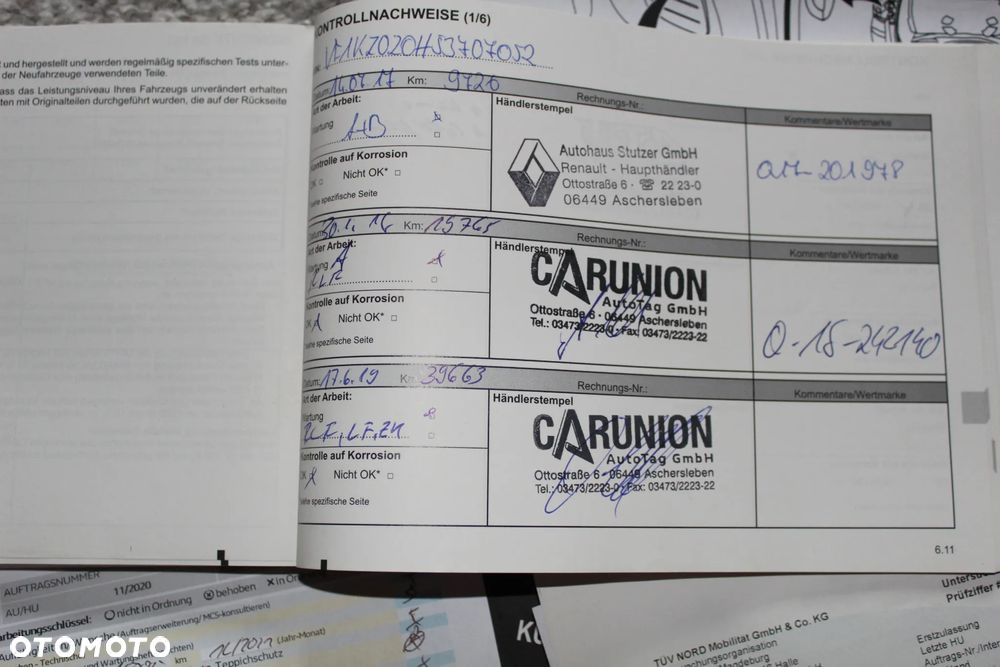 KONTROLLNACHWEISE (1/6)
VF1KZ020H53707052
t und hergestellt und werden regelmäßig spezifischen Tests unter-
der Neufahrzeuge verwendeten Teile.
ass das Leistungsniveau Ihres Fahrzeugs unverändert erhalten
ten mit Originalteilen durchgeführt wurden, die auf der Rückseite
Datum: 14.07.17 Km: 9726 Rechnungs-Nr.:
Art der Arbeit: Händlerstempel Kommentare/Wertmarke
Wartung
A+B
Kontrolle auf Korrosion
OK □ Nicht OK* □
*siehe spezifische Seite
Autohaus Stutzer GmbH
Renault - Haupthändler
Ottostraße 6 · ☏ 22 23-0
06449 Aschersleben
Q17-201978
Datum: Km: 15765 Rechnungs-Nr.:
Art der Arbeit: Händlerstempel Kommentare/Wertmarke
Wartung A
Kontrolle auf Korrosion
OK Nicht OK* □
*siehe spezifische Seite
CARUNION
AutoTag GmbH
Ottostraße 6 · 06449 Aschersleben
Tel.: 03473/2223-0 · Fax: 03473/2223-22
Q-18-242140
Datum: 17.6.19 Km: 39663 Rechnungs-Nr.:
Art der Arbeit: Händlerstempel Kommentare/Wertmarke
Wartung
Kontrolle auf Korrosion
OK Nicht OK* □
*siehe spezifische Seite
CARUNION
AutoTag GmbH
Ottostraße 6 · 06449 Aschersleben
Tel.: 03473/2223-0 · Fax: 03473/2223-22
6.11
AUFTRAGSNUMMER
11/2020
AU/HU
nicht in Ordnung behoben in Or
arbeitungsschlüssel:
(Auftragserweiterung/MCS-konsultieren)
(Jahr-Monat)
km Teppichschutz
TÜV NORD Mobilität GmbH & Co. KG
Magdeburg
Untersu
Prüfziffer #
Erstzulassung
Letzte HU
Auftrags-Nr./Inter
OTOMOTO